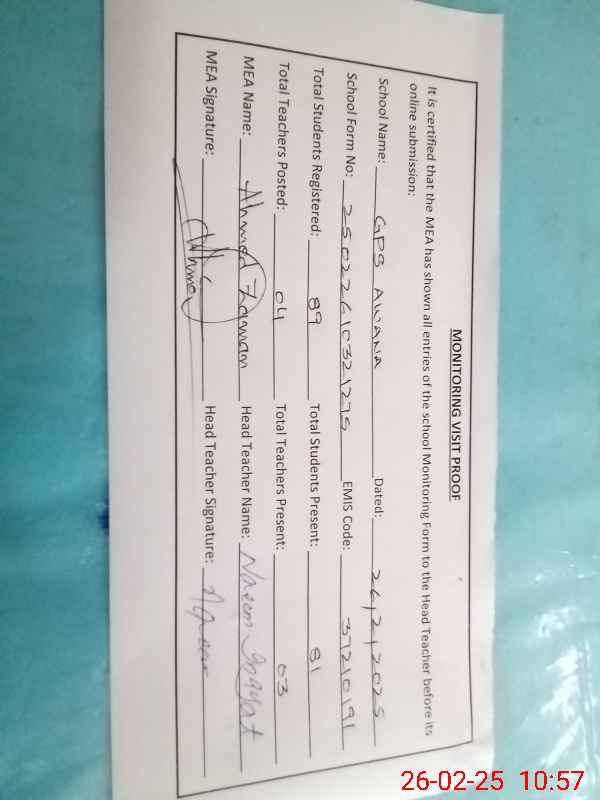 MONITORING VISIT PROOF
It is certified that the MEA has shown all entries of the school Monitoring Form to the Head Teacher before its
online submission:
School Name: GPS AWANA Dated: 26/2/2025
School Form No: 25022610321275 EMIS Code: 37210191
Total Students Registered: 89 Total Students Present: 81
Total Teachers Posted: 04 Total Teachers Present: 03
MEA Name: Ahmed Zaman Head Teacher Name: Naeem Inayat
MEA Signature: Ahmed Head Teacher Signature: Naeem
26-02-25 10:57